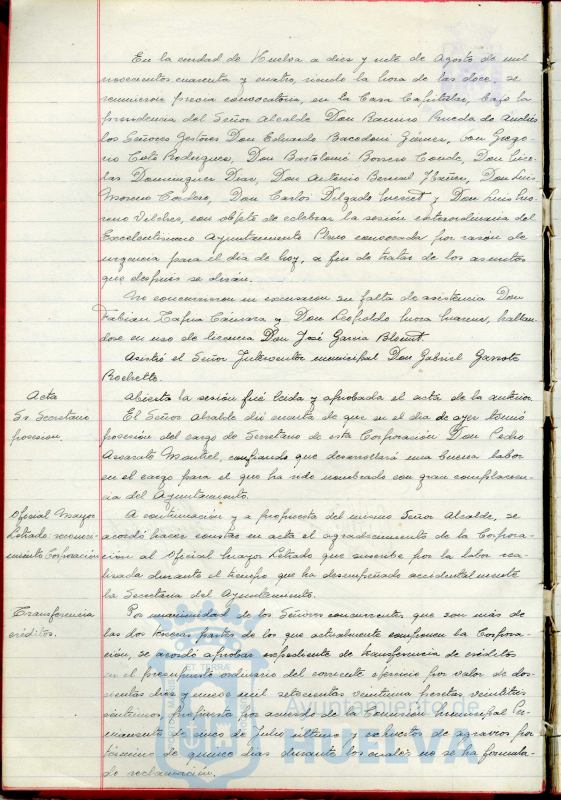 En la ciudad de Huelva a diez y siete de Agosto de mil
novecientos cuarenta y cuatro, siendo la hora de las doce, se
reunieron previa convocatoria, en la Casa Capitular, bajo la
presidencia del Señor Alcalde Don Ramiro Rueda de Andrés
los Señores Gestores Don Eduardo Bacedoni Giménez, Don Grego-
rio Celo Rodriguez, Don Bartolomé Borrero Conde, Don Nico-
las Dominguez Diaz, Don Antonio Bernal Ibañez, Don Luis
Moreno Cordero, Don Carlos Delgado y Don Luis
Vilches, con objeto de celebrar la sesión extraordinaria del
Excelentisimo Ayuntamiento Pleno convocada por razón de
urgencia para el dia de hoy, a fin de tratar de los asuntos
que después se dirán.
No concurrieron ni excusaron su falta de asistencia Don
Fabian Tapia Cámara y Don Leopoldo hallan-
dose en uso de licencia Don José Garcia
Asistió el Señor Interventor municipal Don Gabriel Garrote
Rochette.
Acta
Abierta la sesión fué leida y aprobada el acta de la anterior.
Sr. Secretario
posesion.
El Señor Alcalde dió cuenta de que en el dia de ayer tomó
posesión del cargo de Secretario de esta Corporación Don Pedro
Montiel, confiando que desarrollará una buena labor
en el cargo para el que ha sido nombrado con gran complacen-
cia del Ayuntamiento.
Oficial Mayor
Letrado reconoci-
miento Corporación
A continuación y a propuesta del mismo Señor Alcalde, se
acordó hacer constar en acta el agradecimiento de la Corpora-
ción al Oficial Mayor Letrado que suscribe por la labor rea-
lizada durante el tiempo que ha desempeñado accidentalmente
la Secretaria del Ayuntamiento.
Transferencia
créditos.
Por unanimidad de los Señores concurrentes, que son más de
las dos terceras partes de los que actualmente componen la Corpora-
ción, se acordó aprobar expediente de transferencia de créditos
en el presupuesto ordinario del corriente ejercicio por valor de dos-
cientas diez y nueve mil setecientas veintiuna pesetas, veintitres
céntimos, propuesta por acuerdo de la Comisión Municipal Per-
manente de cinco de Julio último y expuestos de agravios por
término de quince dias durante los cuales no se ha formula-
do reclamación.
ET TERRÆ
Ayuntamiento de
HUELVA